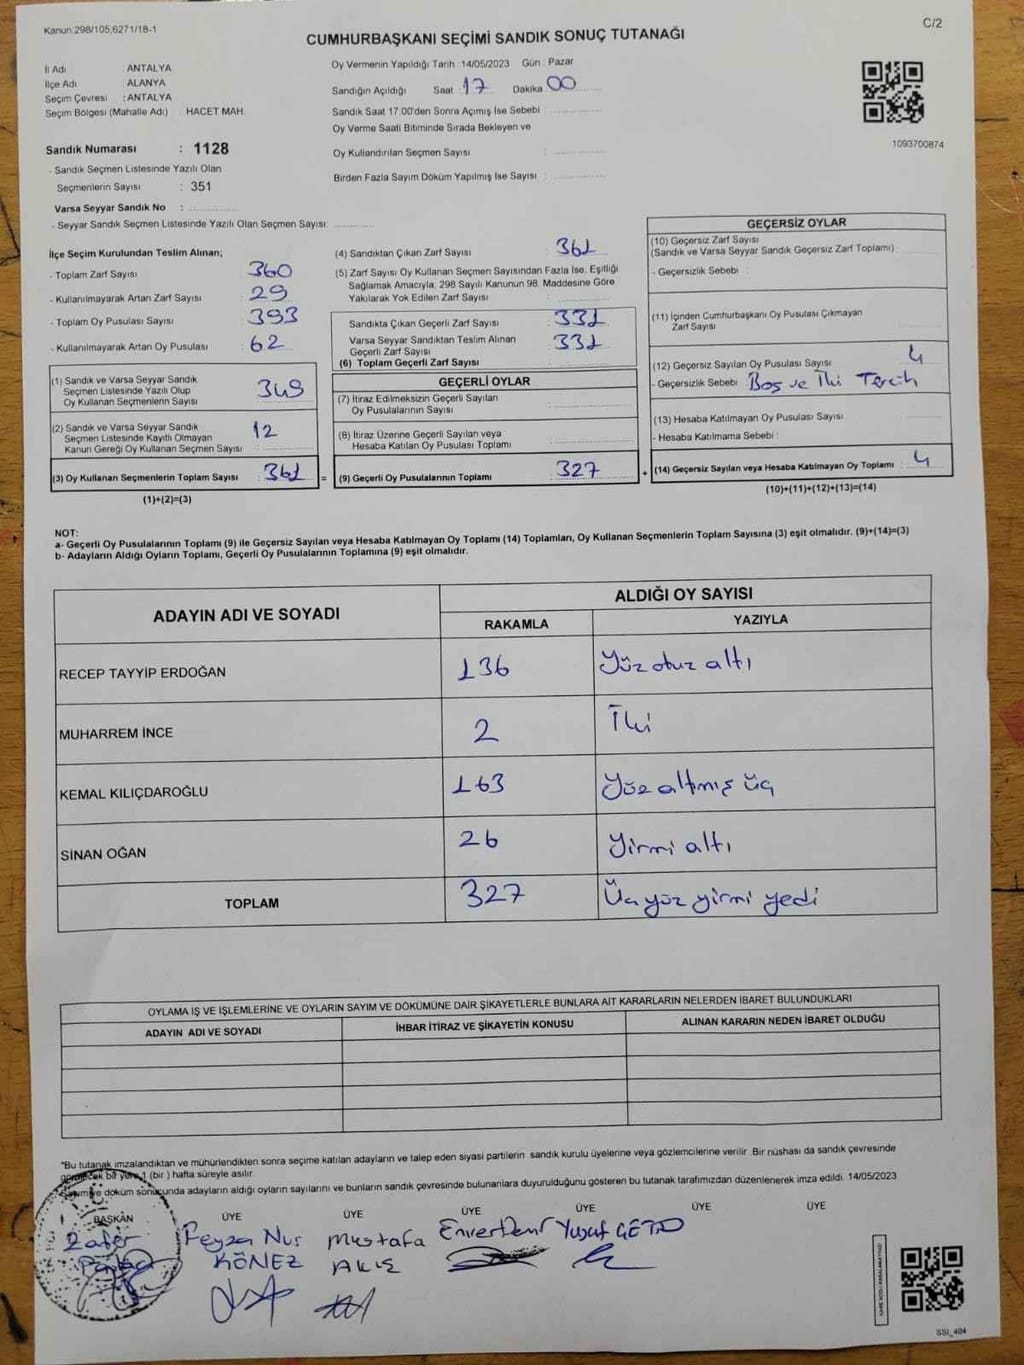 Kanun:298/105,6271/18-1
C/2
CUMHURBAŞKANI SEÇİMİ SANDIK SONUÇ TUTANAĞI
İl Adı ANTALYA
İlçe Adı ALANYA
Seçim Çevresi : ANTALYA
Seçim Bölgesi (Mahalle Adı) HACET MAH
Sandık Numarası : 1128
- Sandık Seçmen Listesinde Yazılı Olan
Seçmenlerin Sayısı : 351
Varsa Seyyar Sandık No :
- Seyyar Sandık Seçmen Listesinde Yazılı Olan Seçmen Sayısı:
Oy Vermenin Yapıldığı Tarih : 14/05/2023 Gün : Pazar
Sandığın Açıldığı Saat : 17 Dakika 00
Sandık Saat 17.00'den Sonra Açımış İse Sebebi :
Oy Verme Saati Bitiminde Sırada Bekleyen ve
Oy Kullandırılan Seçmen Sayısı :
Birden Fazla Sayım Döküm Yapılmış İse Sayısı :
1093700874
İlçe Seçim Kurulundan Teslim Alınan;
- Toplam Zarf Sayısı : 360
- Kullanılmayarak Artan Zarf Sayısı : 29
- Toplam Oy Pusulası Sayısı : 393
- Kullanılmayarak Artan Oy Pusulası : 62
(1) Sandık ve Varsa Seyyar Sandık
Seçmen Listesinde Yazılı Olup
Oy Kullanan Seçmenlerin Sayısı 349
(2) Sandık ve Varsa Seyyar Sandık
Seçmen Listesinde Kayıtlı Olmayan
Kanun Gereği Oy Kullanan Seçmen Sayısı 12
(3) Oy Kullanan Seçmenlerin Toplam Sayısı : 361
(1)+(2)=(3)
(4) Sandıktan Çıkan Zarf Sayısı : 361
(5) Zarf Sayısı Oy Kullanan Seçmen Sayısından Fazla İse, Eşitliği
Sağlamak Amacıyla; 298 Sayılı Kanunun 98. Maddesine Göre
Yakılarak Yok Edilen Zarf Sayısı :
Sandıkta Çıkan Geçerli Zarf Sayısı : 331
Varsa Seyyar Sandıktan Teslim Alınan
Geçerli Zarf Sayısı : 331
(6) Toplam Geçerli Zarf Sayısı :
GEÇERLİ OYLAR
(7) İtiraz Edilmeksizin Geçerli Sayılan
Oy Pusulalarının Sayısı :
(8) İtiraz Üzerine Geçerli Sayılan veya
Hesaba Katılan Oy Pusulası Toplamı :
= (9) Geçerli Oy Pusulalarının Toplamı : 327 +
GEÇERSİZ OYLAR
(10) Geçersiz Zarf Sayısı
(Sandık ve Varsa Seyyar Sandık Geçersiz Zarf Toplamı)
- Geçersizlik Sebebi :
(11) İçinden Cumhurbaşkanı Oy Pusulası Çıkmayan
Zarf Sayısı :
(12) Geçersiz Sayılan Oy Pusulası Sayısı : 4
- Geçersizlik Sebebi : Boş ve İki Tercih
(13) Hesaba Katılmayan Oy Pusulası Sayısı :
- Hesaba Katılmama Sebebi :
(14) Geçersiz Sayılan veya Hesaba Katılmayan Oy Toplamı : 4
(10)+(11)+(12)+(13)=(14)
NOT:
a- Geçerli Oy Pusulalarının Toplamı (9) ile Geçersiz Sayılan veya Hesaba Katılmayan Oy Toplamı (14) Toplamları, Oy Kullanan Seçmenlerin Toplam Sayısına (3) eşit olmalıdır. (9)+(14)=(3)
b- Adayların Aldığı Oyların Toplamı, Geçerli Oy Pusulalarının Toplamına (9) eşit olmalıdır.
ADAYIN ADI VE SOYADI
ALDIĞI OY SAYISI
RAKAMLA YAZIYLA
RECEP TAYYİP ERDOĞAN 136 Yüz otuz altı
MUHARREM İNCE 2 İki
KEMAL KILIÇDAROĞLU 163 Yüz altmış üç
SİNAN OĞAN 26 Yirmi altı
TOPLAM 327 Üç yüz yirmi yedi
OYLAMA İŞ VE İŞLEMLERİNE VE OYLARIN SAYIM VE DÖKÜMÜNE DAİR ŞİKAYETLERLE BUNLARA AİT KARARLARIN NELERDEN İBARET BULUNDUKLARI
ADAYIN ADI VE SOYADI İHBAR İTİRAZ VE ŞİKAYETİN KONUSU ALINAN KARARIN NEDEN İBARET OLDUĞU
*Bu tutanak imzalandıktan ve mühürlendikten sonra seçime katılan adayların ve talep eden siyasi partilerin sandık kurulu üyelerine veya gözlemcilerine verilir. Bir nüshası da sandık çevresinde
görülecek bir yere 1 (bir ) hafta süreyle asılır.
Sayım ve döküm sonucunda adayların aldığı oyların sayılarını ve bunların sandık çevresinde bulunanlara duyurulduğunu gösteren bu tutanak tarafımızdan düzenlenerek imza edildi. 14/05/2023
BAŞKAN ÜYE ÜYE ÜYE ÜYE ÜYE ÜYE
Zafer Feyza Nur Mustafa Enver Yusuf
KÖNEZ
SSI_404